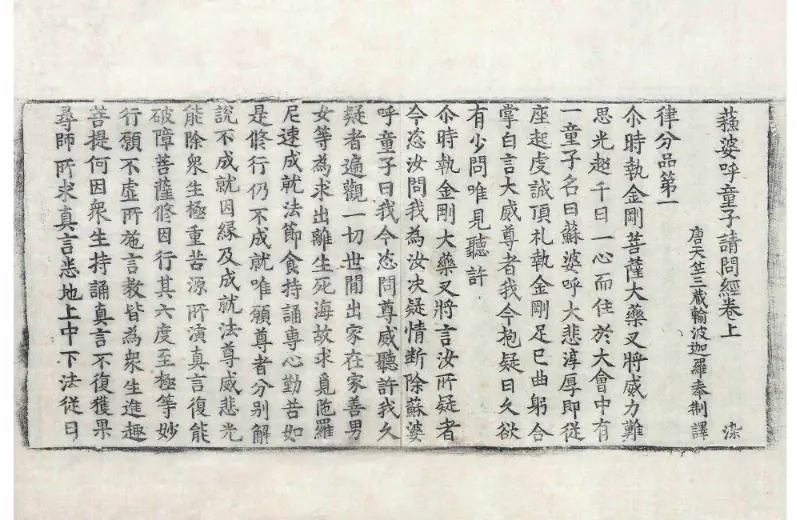 蘇婆呼童子請問經卷上 染
唐天竺三藏輸波迦羅奉制譯
律分品第一
尒時執金剛菩薩大藥叉將威力難
思光超千日一心而住於大會中有
一童子名曰蘇婆呼大悲淳厚即從
座起虔誠頂礼執金剛足已曲躬合
掌白言大威尊者我今抱疑日久欲
有少問唯見聽許
尒時執金剛大藥叉將言汝所疑者
今恣汝問我為汝决疑情断除蘇婆
呼童子曰我今恣問尊威聽許我久
疑者遍觀一切世閒出家在家善男
女等為求出離生死海故求覓陁羅
尼速成就法節食持誦專心勤苦如
是修行仍不成就唯願尊者分别解
說不成就因緣及成就法尊威悲光
能除衆生極重苦源所演真言復能
破障菩薩修因行其六度至極等妙
行願不虛所施言教皆為衆生進趣
菩提何因衆生持誦真言不復獲果
尋師所求真言悉地上中下法從日